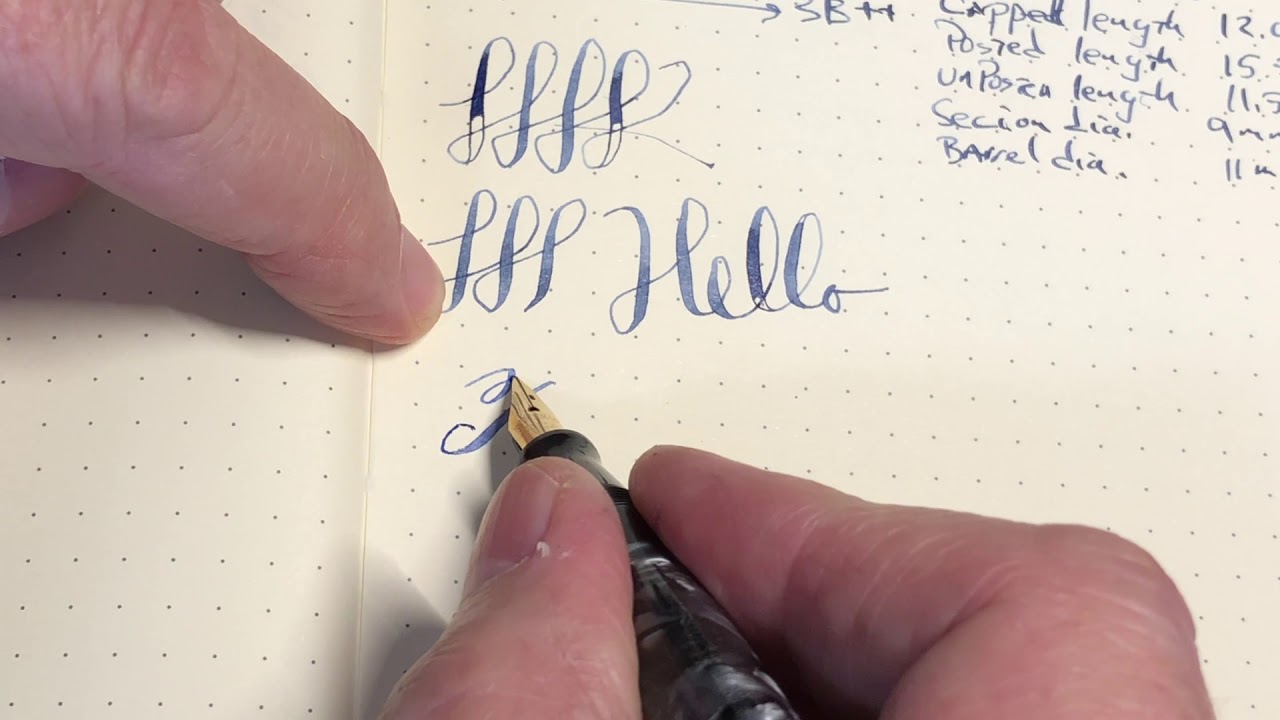 3B++
Capped length 12.
Posted length 15.
unPosed length 11.5
Secion dia. 9mm
BArrel dia. 11m
Hello